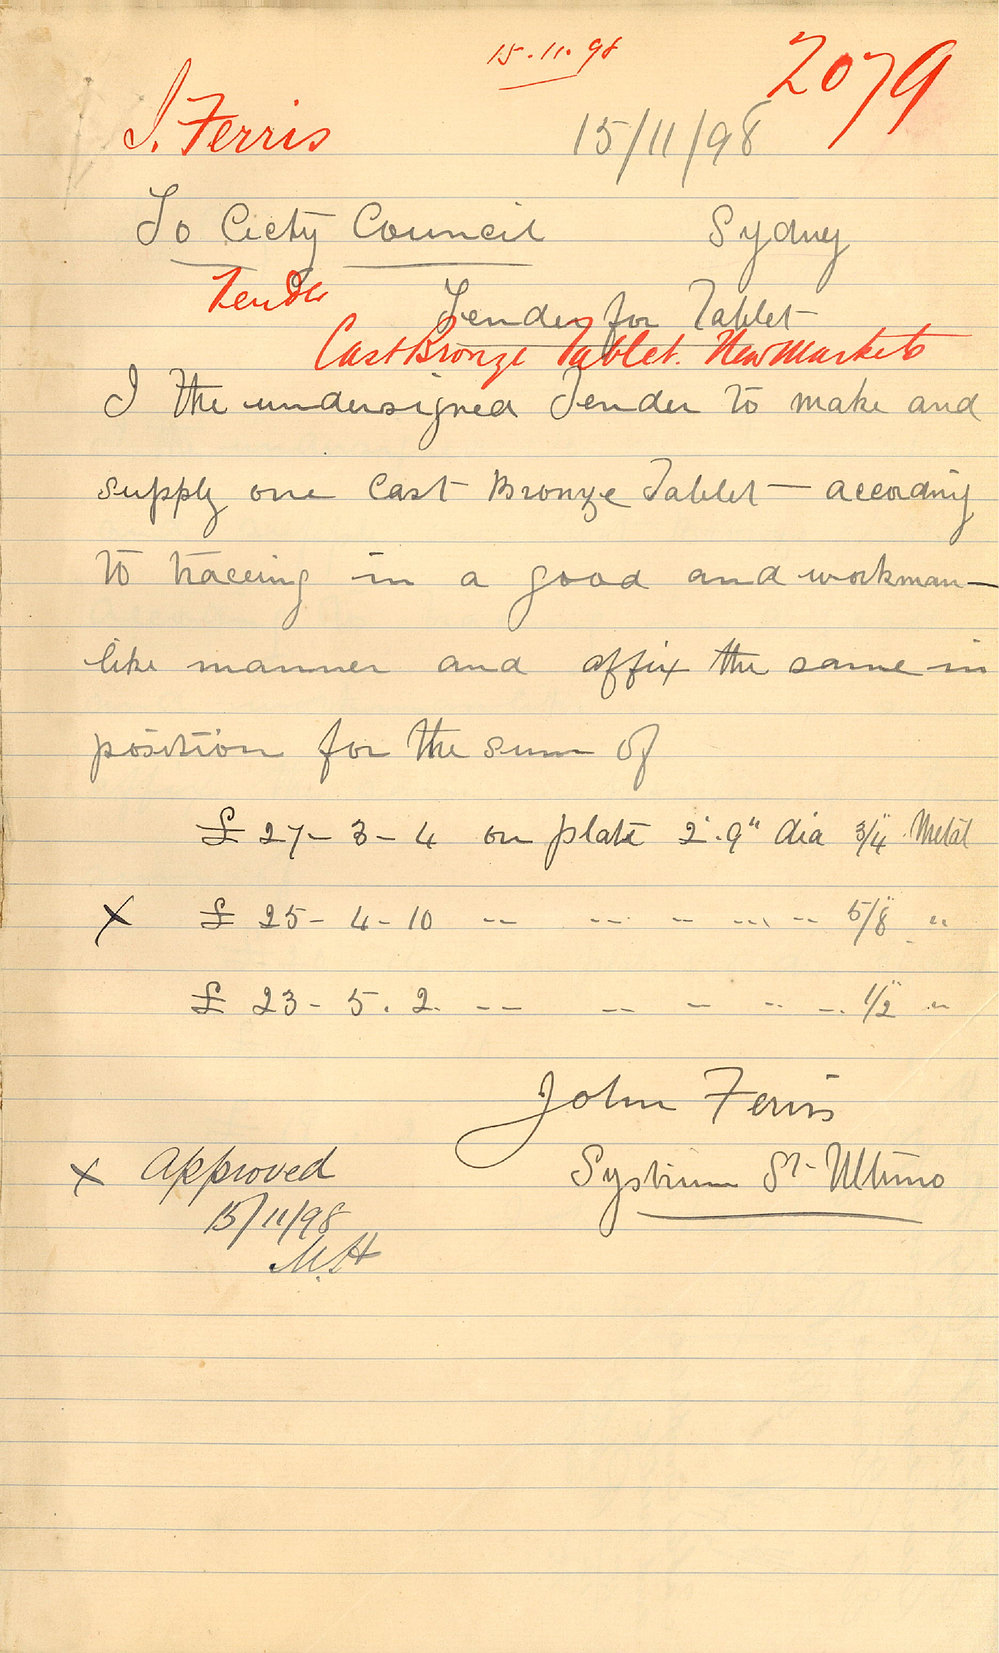 15.11.98
2079
J. Ferris
15/11/98
To Ciety Council Sydney
Tender
Tender for Tablet
Cast Bronze Tablet. New Markets
I the undersigned Tender to make and
supply one Cast Bronze Tablet - according
to traceing in a good and workman-
like manner and affix the same in
position for the sum of
£ 27-3-4 on plate 2'.9" dia 3/4" Metal
X £ 25-4-10 -- -- -- -- -- 5/8" "
£ 23-5.2. -- -- -- -- -- 1/2" "
John Ferris
Systrium St- Ultimo
X Approved
15/11/98